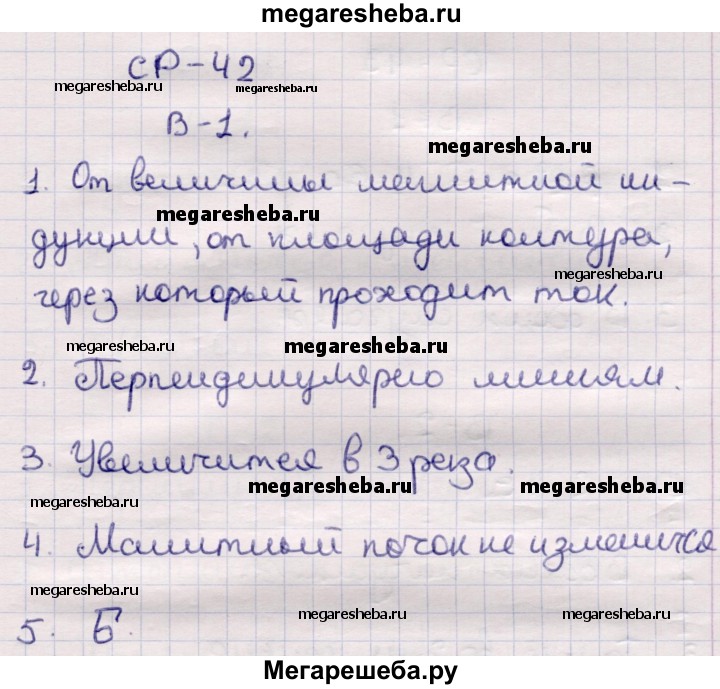 megaresheba.ru
СР-42
megaresheba.ru megaresheba.ru
В-1.
megaresheba.ru
1. От величины магнитной ин-
megaresheba.ru
дукции, от площади контура,
megaresheba.ru
через который проходит ток.
megaresheba.ru megaresheba.ru
2. Перпендикулярно линиям.
3. Увеличится в 3 раза.
megaresheba.ru megaresheba.ru
megaresheba.ru
4. Магнитный поток не изменится
megaresheba.ru
megaresheba.ru megaresheba.ru
5. Б.
Мегарешеба.ру